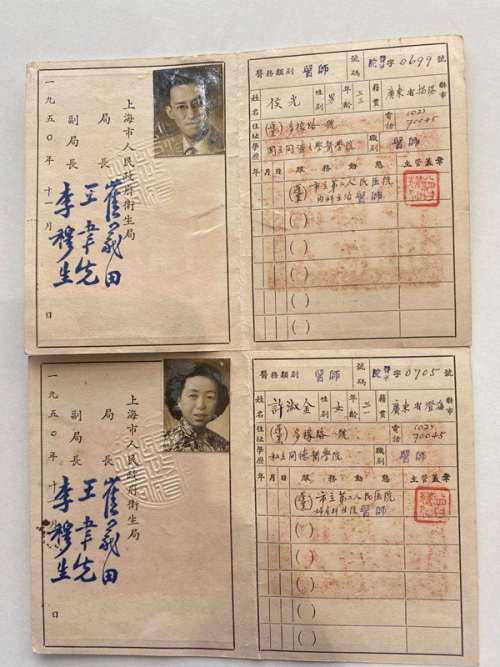 一九五〇年十一月　日
上海市人民政府衛生局
局長
副局長
崔義田
王聿先
李穆生
醫務類別 醫師 號碼 醫字0699號
姓名 侯光 性別 男 年齡 三三 籍貫 廣東省揭陽縣市
住址 多稼路一號 電話 (02)70045
學歷 國立同濟大學醫學院 職別 醫師
年月日 服務動態 主管蓋章
市立第二人民医院
内科主治醫師
( )
( )
( )
( )
一九五〇年十月　日
上海市人民政府衛生局
局長
副局長
崔義田
王聿先
李穆生
醫務類別 醫師 號碼 醫字0705號
姓名 許淑金 性別 女 年齡 三一 籍貫 廣東省澄海縣市
住址 多稼路一號 電話 (02)70045
學歷 私立同德醫學院 職別 醫師
年月日 服務動態 主管蓋章
市立第二人民医院
婦產科住院醫師
( )
( )
( )
( )